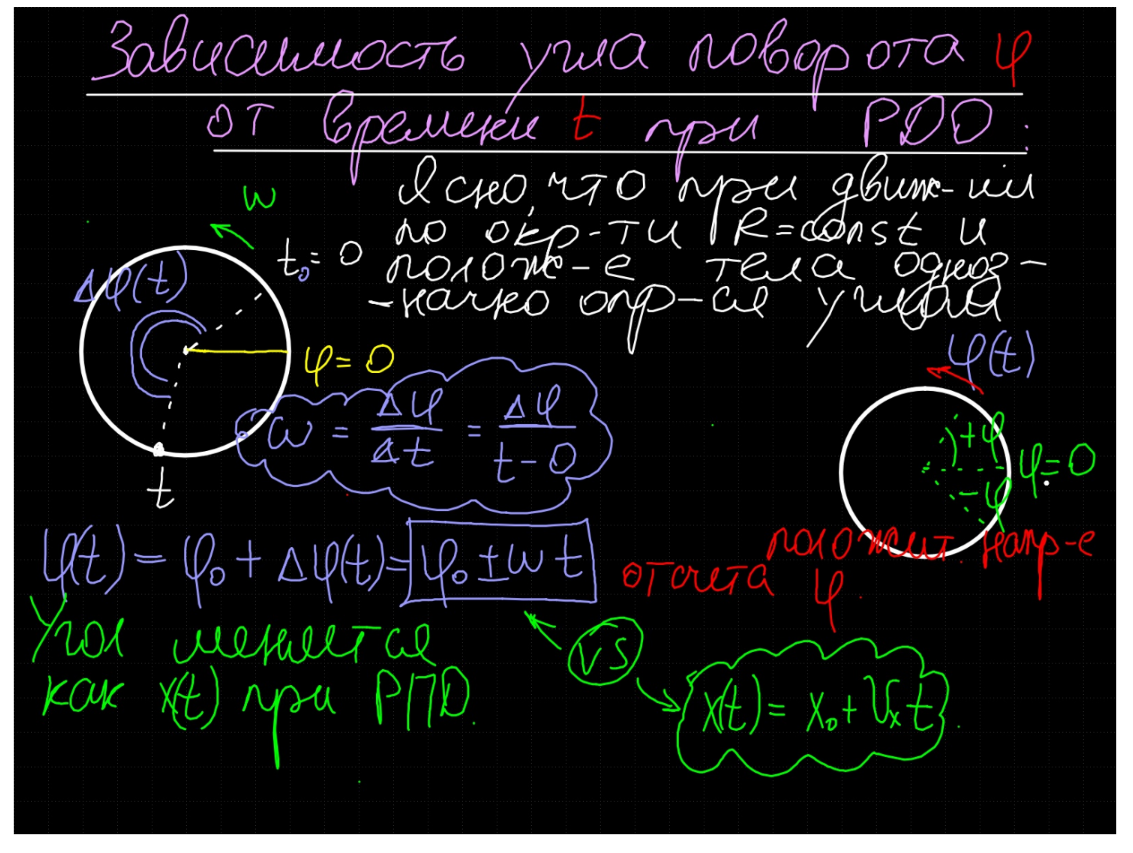 Зависимость угла поворота φ
от времени t при РДО:
Ясно, что при движ-ии
по окр-ти R=const и
полож-е тела одноз-
-начно опр-ся углом
φ(t)
ω
t₀ = 0
Δφ(t)
φ = 0
t
ω = Δφ/Δt = Δφ/(t-0)
+φ
φ=0
-φ
положит. напр-е
отсчета φ.
φ(t) = φ₀ + Δφ(t) = φ₀ ± ωt
Угол меняется
как x(t) при РПД.
VS
x(t) = x₀ + Vₓ t.